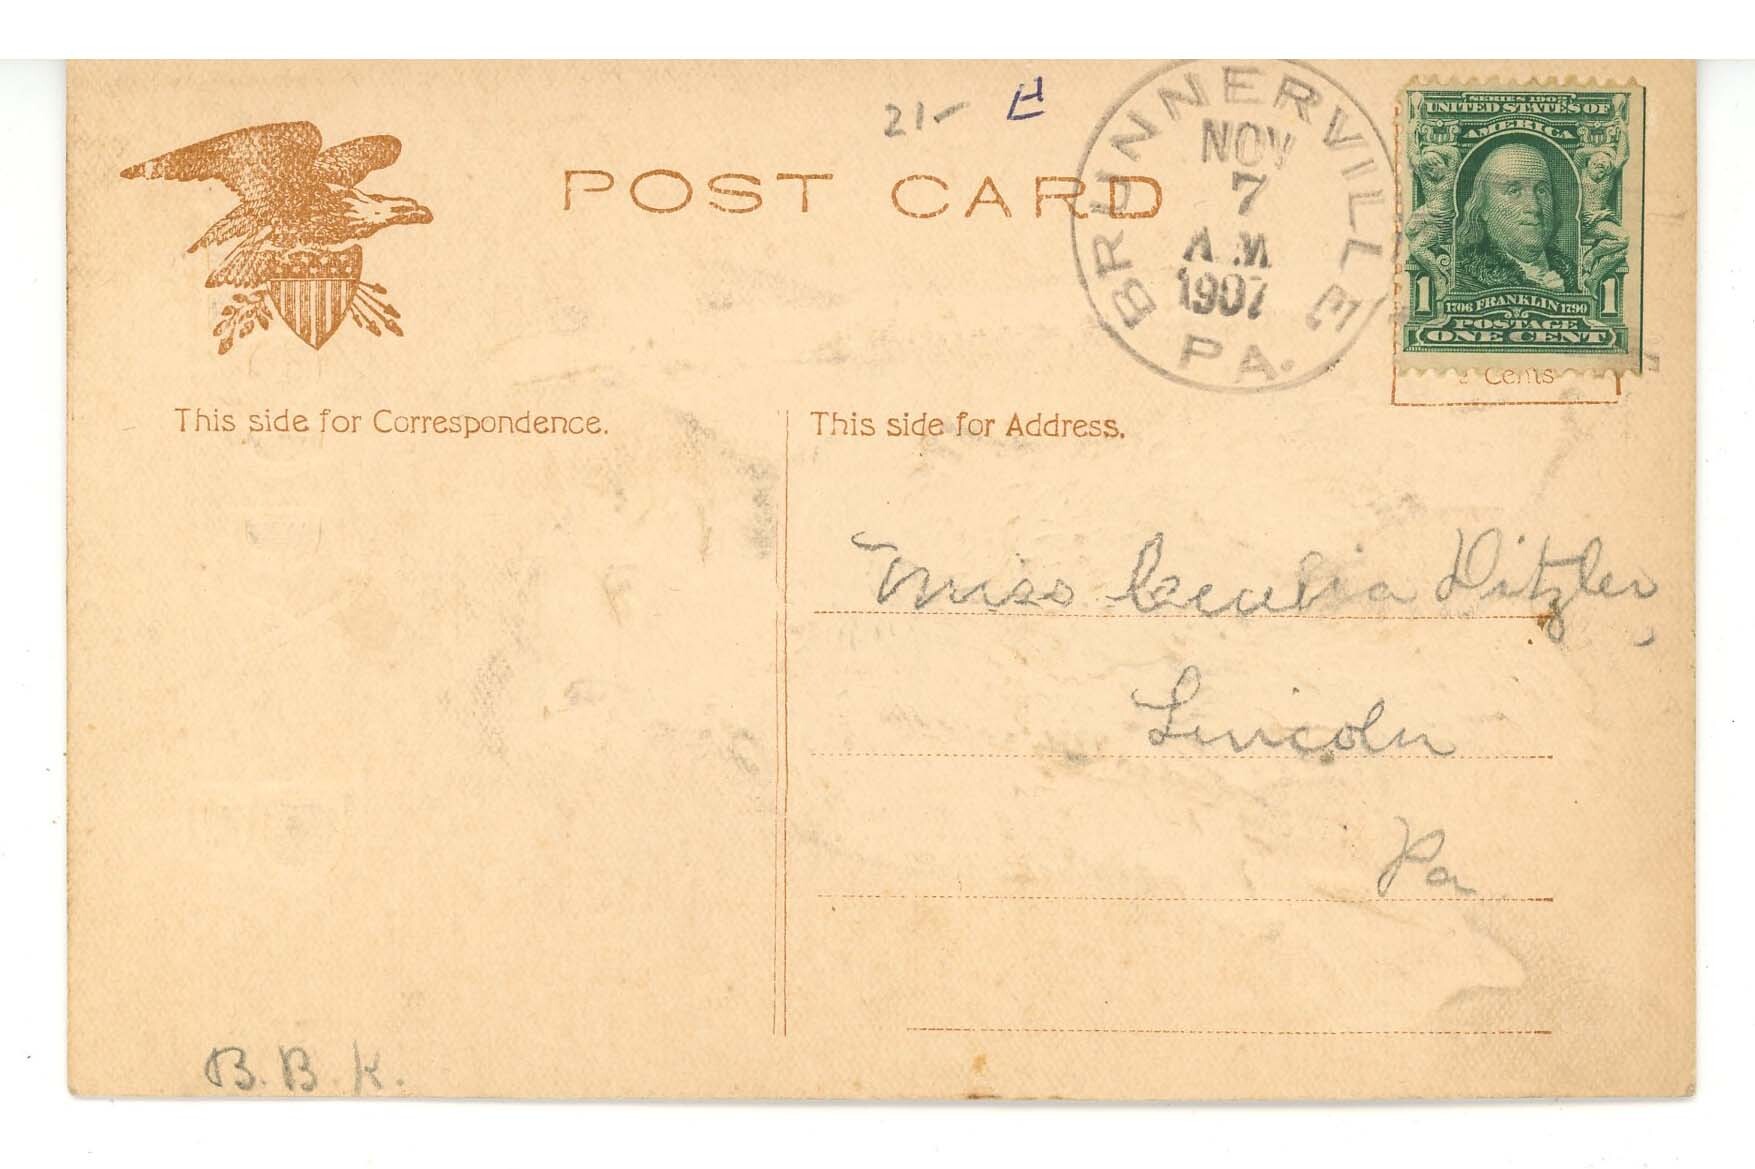 21-
H
POST CARD
BRUNNERVILLE
NOV
7
A.M
1907
PA.
SERIES 1902
UNITED STATES OF
AMERICA
1 1
1706 FRANKLIN 1790
POSTAGE
ONE CENT
Cents
This side for Correspondence.
This side for Address.
Miss Ditzler,
Lincoln
Pa
B.B.K.